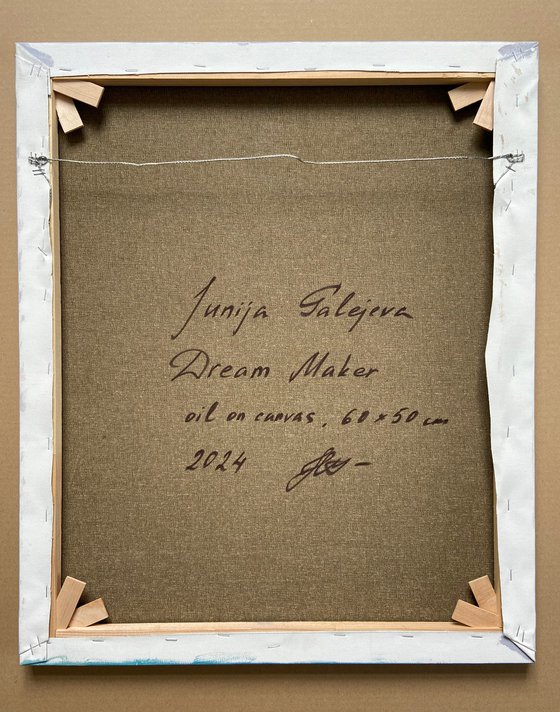 Junija Galejeva
Dream Maker
oil on canvas, 60 x 50 cm
2024